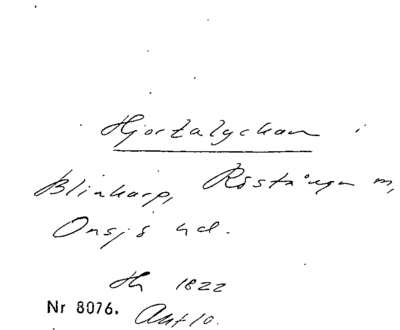 Hjortalyckan i
Blinkarp, Röstånga m,
Onsjö hd.
Th 1822
Nr 8076. Akt 10.